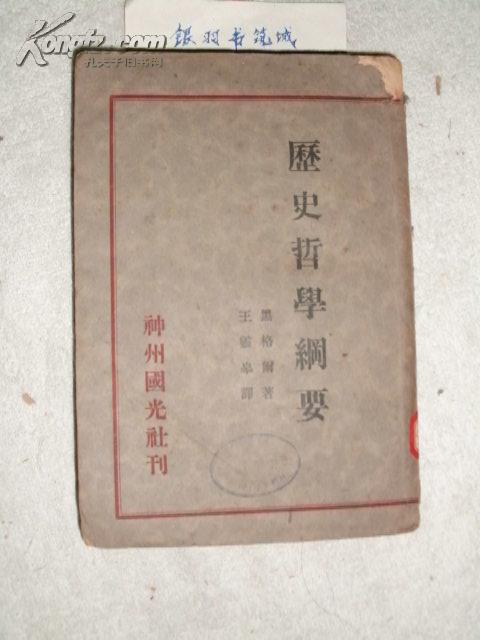 Kongfz.com
孔夫子旧书网
銀羽书筑城
歷史哲學綱要
黑格爾著
王靈皋譯
神州國光社刊